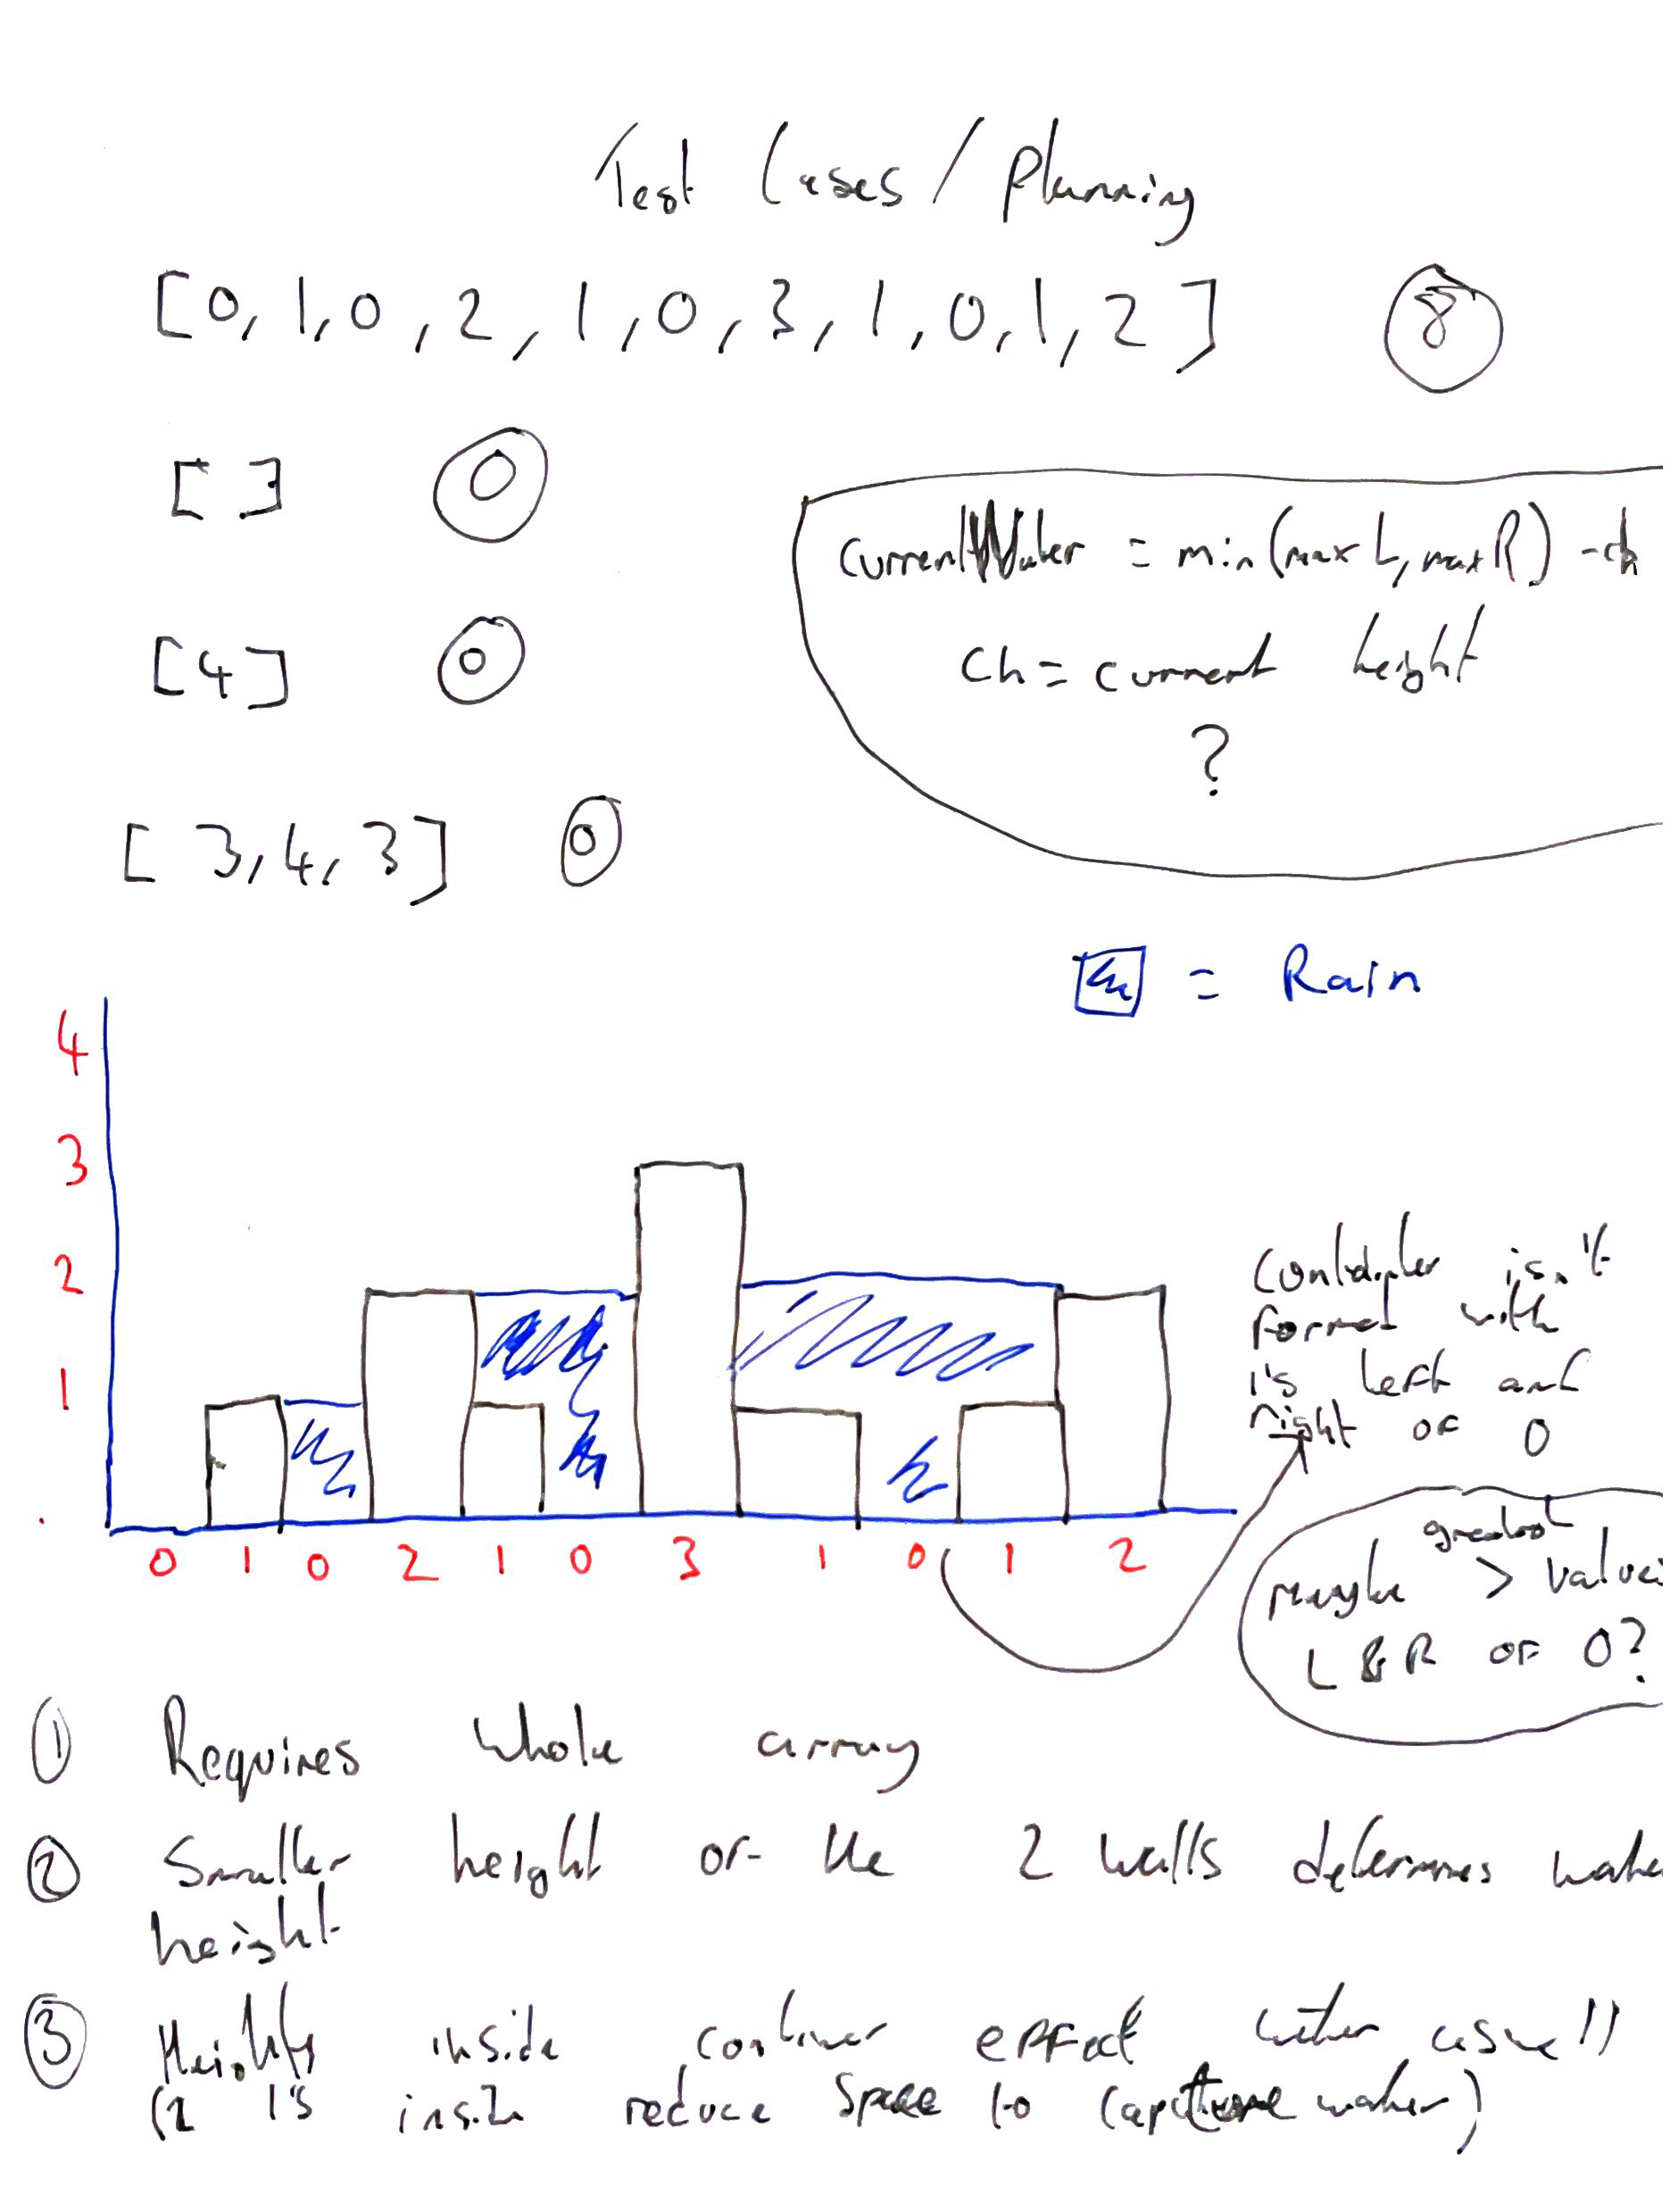 Test Cases / Planning
[0, 1, 0, 2, 1, 0, 3, 1, 0, 1, 2] 8
[ ] 0
[4] 0
[3, 4, 3] 0
currentWater = min(max L, max R) - ch
ch = current height
?
= Rain
4
3
2
1
0 1 0 2 1 0 3 1 0 1 2
Container isn't
formed with
1's left and
right of 0
greatest
maybe > value
L & R of 0?
① Requires whole array
② Smaller height of the 2 walls determines wate
height
③ Heights inside container effect water as well
(2 1's inside reduce space to capture water)